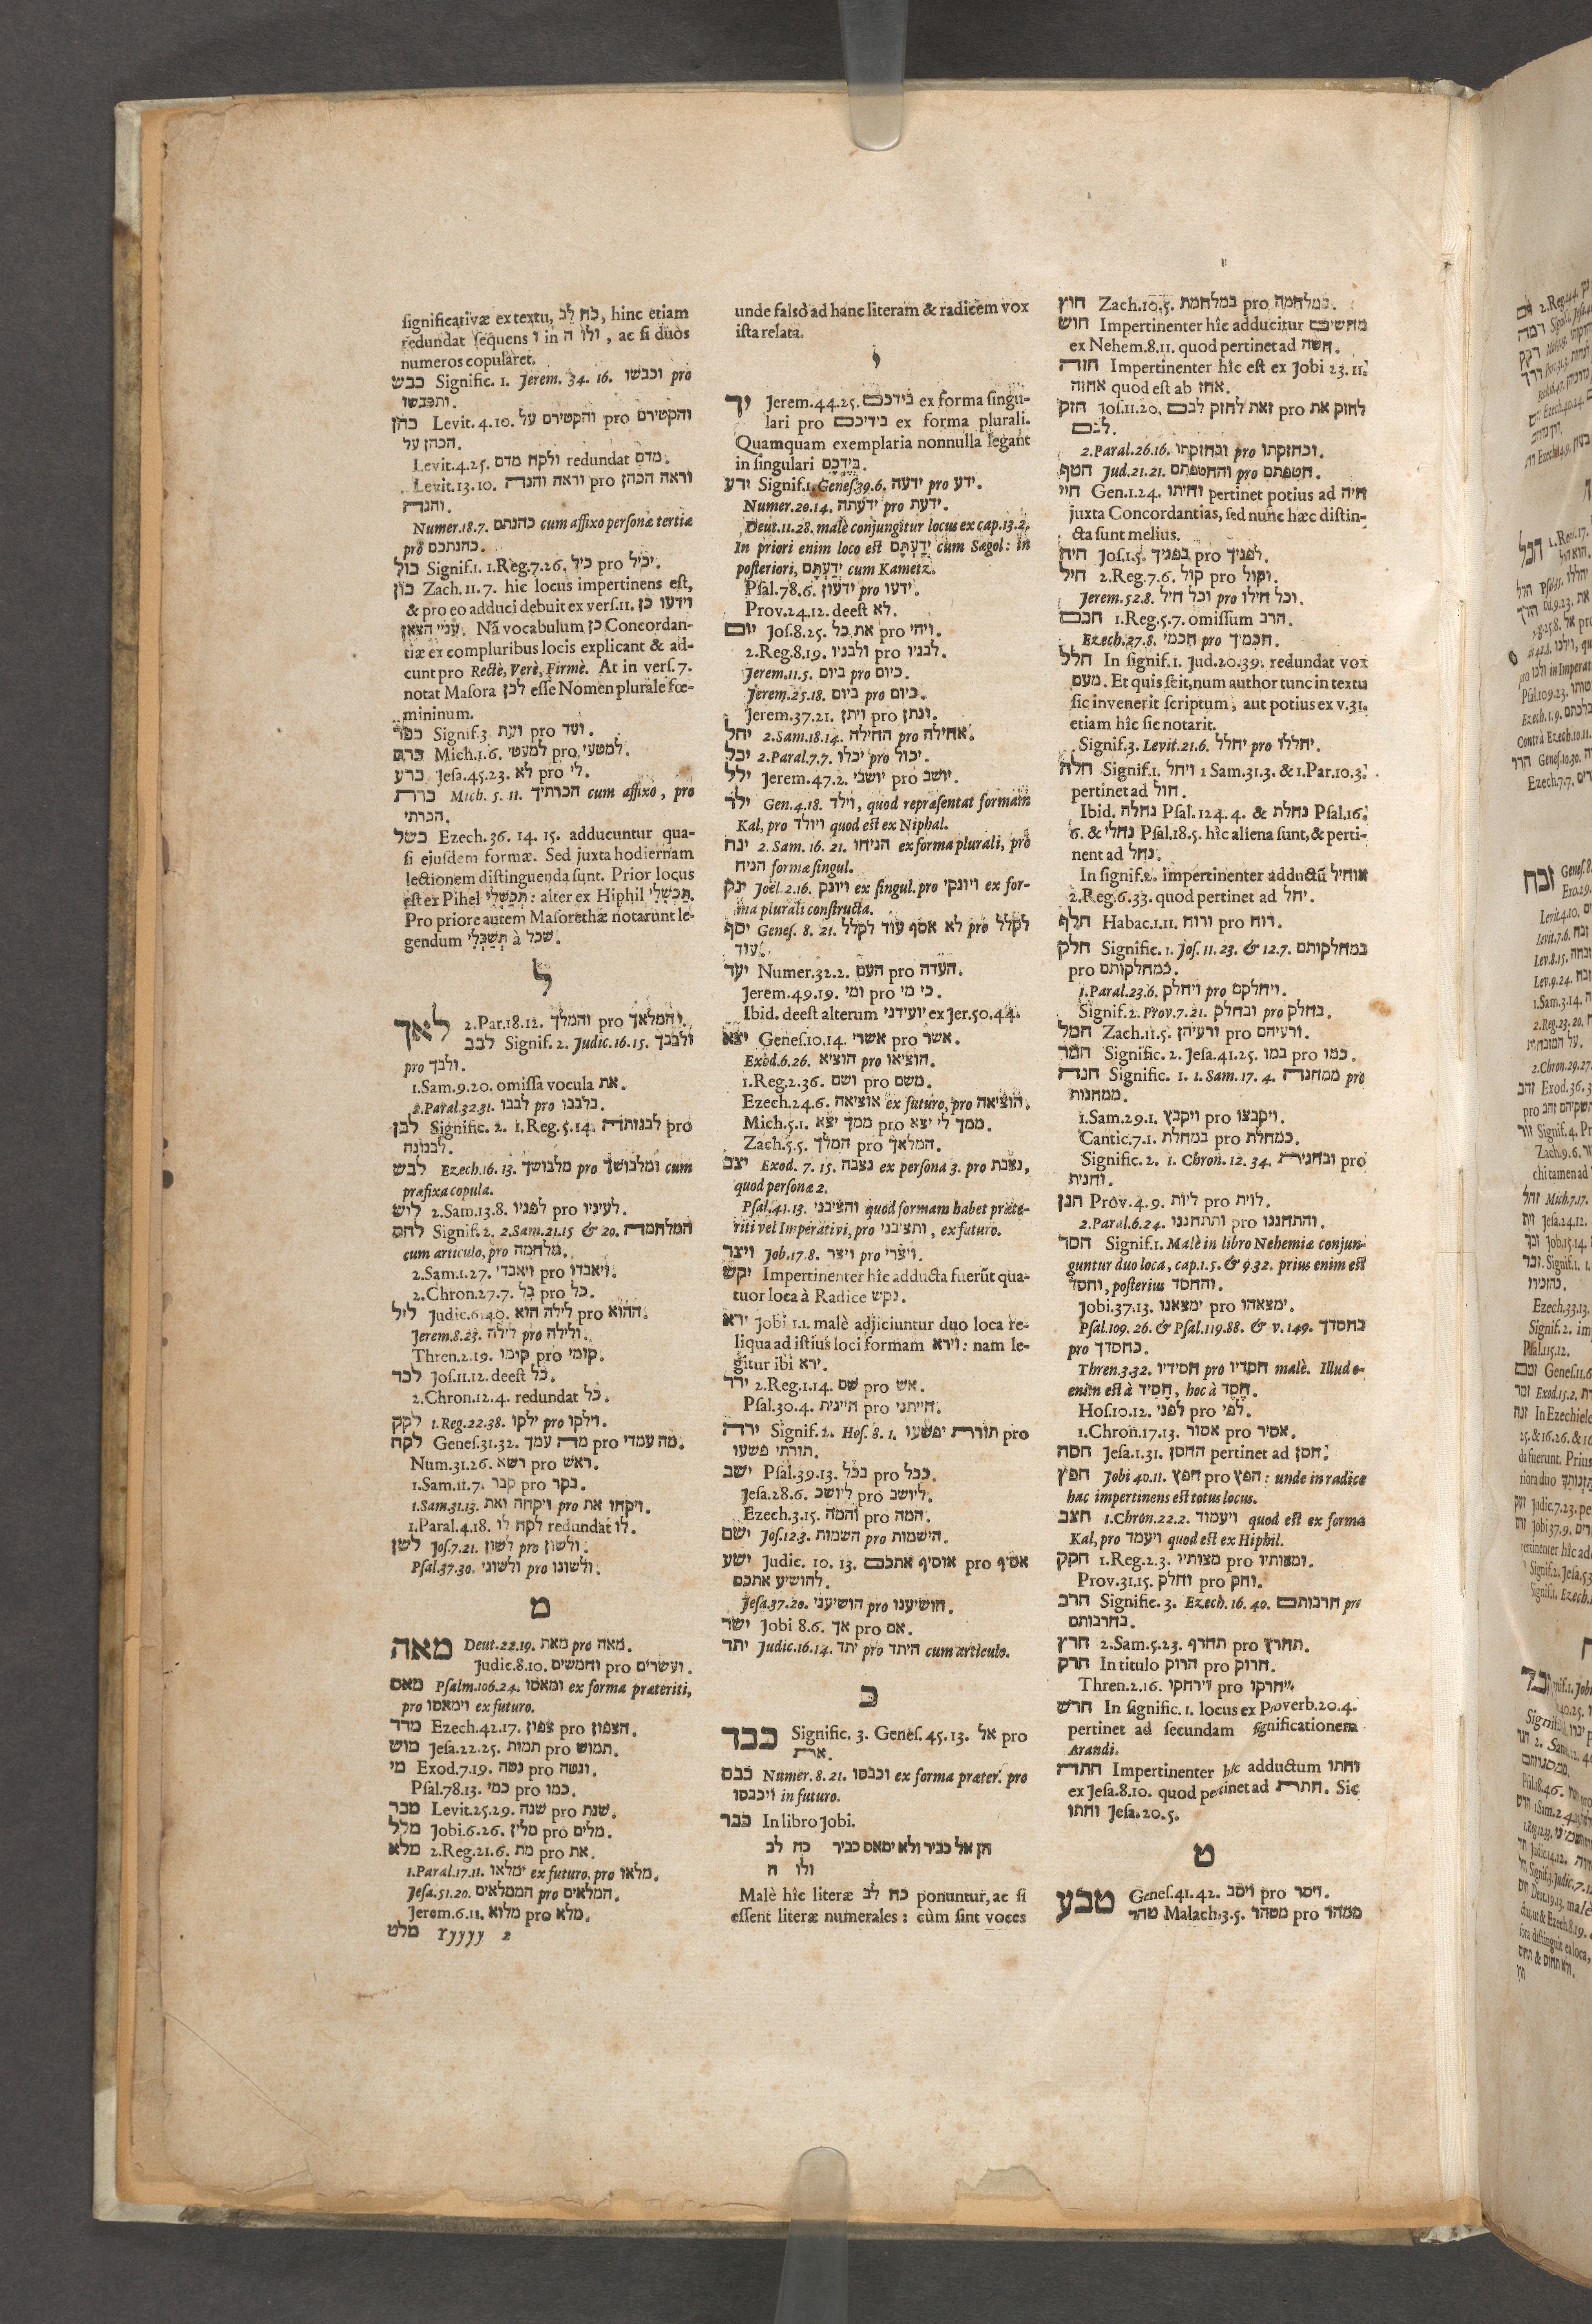 חוץ Zach.10.5. במלחמת pro במלחמה.
חוש Impertinenter hîc adducitur מחשים
ex Nehem.8.11. quod pertinet ad חשה.
חזה Impertinenter hîc est ex Jobi 23.11.
אחזה quod est ab אחז.
חזק Jos.11.20. זאת לחזק לבם pro לחזק את
לבם.
2.Paral.26.16. ובחזקתו pro וכחזקתו.
חטף Jud.21.21. והחטפתם pro חטפתם.
חיי Gen.1.24. וחיתו pertinet potius ad חיה
juxta Concordantias, sed nunc hæc distin-
cta sunt melius.
חיה Jos.1.5. בפניך pro לפניך.
חיל 2.Reg.7.6. קול pro וקול.
Jerem.52.8. וכל חיל pro וכל חילו.
חכם 1.Reg.5.7. omissum הרב.
Ezech.27.8. חכמי pro חכמיך.
חלל In signif.1. Jud.20.39. redundat vox
מעם. Et quis scit, num author tunc in textu
sic invenerit scriptum, aut potius ex v.31.
etiam hîc sic notarit.
Signif.3. Levit.21.6. יחלל pro יחללו.
חלה Signif.1. ויחל 1 Sam.31.3. & 1.Par.10.3.
pertinet ad חול.
Ibid. נחלה Psal.124.4. & נחלת Psal.16.
6. & נחלי Psal.18.5. hîc aliena sunt, & perti-
nent ad נחל.
In signif.2. impertinenter adductũ אוחיל
2.Reg.6.33. quod pertinet ad יחל.
חלף Habac.1.11. ורוח pro רוח.
חלק Signific. 1. Jos. 11. 23. & 12.7. במחלקותם
pro כמחלקותם.
1.Paral.23.6. ויחלק pro ויחלקם.
Signif.2. Prov.7.21. ובחלק pro בחלק.
חמל Zach.11.5. ורעיהן pro ורעיהם.
חמר Signific. 2. Jesa.41.25. במו pro כמו.
חנה Signific. 1. 1. Sam. 17. 4. ממחנה pro
ממחנות.
1.Sam.29.1. ויקבץ pro ויקבצו.
Cantic.7.1. במחלת pro כמחלת.
Signific. 2. 1. Chron. 12. 34. ובחנית pro
וחנית.
חנן Prov.4.9. ליות pro לוית.
2.Paral.6.24. ותתחננו pro והתחננו.
חסד Signif.1. Malè in libro Nehemiæ conjun-
guntur duo loca, cap.1.5. & 9.32. prius enim est
וחסד, posterius והחסד.
Jobi.37.13. ימצאנו pro ימצאהו.
Psal.109. 26. & Psal.119.88. & v.149. בחסדך
pro כחסדך.
Thren.3.32. חסידיו pro חסדיו malè. Illud e-
enim est à חָסִיד, hoc à חֶסֶד.
Hos.10.12. לפני pro לפי.
1.Chron.17.13. אסור pro אסיר.
חסה Jesa.1.31. החסן pertinet ad חסן.
חפץ Jobi 40.11. חפץ pro הפץ : unde in radice
hac impertinens est totus locus.
חצב 1.Chron.22.2. ויעמוד quod est ex forma
Kal, pro ויעמד quod est ex Hiphil.
חקק 1.Reg.2.3. מצותיו pro ומצותיו.
Prov.31.15. וחלק pro וחק.
חרב Signific. 3. Ezech. 16. 40. חרבותם pro
בחרבותם.
חרץ 2.Sam.5.23. תחרף pro תחרץ.
חרק In titulo הרוק pro חרוק.
Thren.2.16. וירחקו pro ויחרקו.
חרש In signific. 1. locus ex Proverb.20.4.
pertinet ad secundam significationem
Arandi.
חתה Impertinenter hîc adductum וחתו
ex Jesa.8.10. quod pertinet ad חתת. Sic
וחתו Jesa.20.5.
ט
טבע Genes.41.42. ויסב pro ויסר.
טהר Malach.3.5. מטהר pro ממהר
unde falsò ad hanc literam & radicem vox
ista relata.
י
יד Jerem.44.25. בידכם ex forma singu-
lari pro בידיכם ex forma plurali.
Quamquam exemplaria nonnulla legant
in singulari בְּיֶדְכֶם.
ידע Signif.1. Genes.39.6. ידעה pro ידע.
Numer.20.14. ידעתה pro ידעת.
Deut.11.28. malè conjungitur locus ex cap.13.2.
In priori enim loco est יְדַעְתֶּם cum Sægol: in
posteriori, יְדַעְתָּם cum Kametz.
Psal.78.6. ידעון pro ידעו.
Prov.24.12. deest לא.
יום Jos.8.25. את כל pro ויהי.
2.Reg.8.19. ולבניו pro לבניו.
Jerem.11.5. ביום pro כיום.
Jerem.25.18. ביום pro כיום.
Jerem.37.21. ויתן pro ונתן.
יחל 2.Sam.18.14. החילה pro אחילה.
יכל 2.Paral.7.7. יכלו pro יכול.
ילל Jerem.47.2. יושבי pro יושב.
ילד Gen.4.18. וילד, quod repræsentat formam
Kal, pro ויולד quod est ex Niphal.
ינח 2. Sam. 16. 21. הניחו ex forma plurali, pro
הניח formæ singul.
ינק Joël 2.16. ויונק ex singul. pro ויונקי ex for-
ma plurali constructa.
יסף Genes. 8. 21. לא אסף עוד לקלל pro לקלל
עוד.
יעד Numer.32.2. העם pro העדה.
Jerem.49.19. ומי pro כי מי.
Ibid. deest alterum יועידני ex Jer.50.44.
יצא Genes.10.14. אשרי pro אשר.
Exod.6.26. הוציא pro הוציאו.
1.Reg.2.36. ושם pro משם.
Ezech.24.6. אוציאה ex futuro, pro הוציאה.
Mich.5.1. ממך יצא pro ממך לי יצא.
Zach.5.5. המלך pro המלאך.
יצב Exod. 7. 15. נצבה ex persona 3. pro נצבת,
quod personæ 2.
Psal.41.13. והציבני quod formam habet præte-
riti vel Imperativi, pro ותציבני, ex futuro.
ויצר Job.17.8. ויצר pro ויצרי.
יקש Impertinenter hîc adducta fuerũt qua-
tuor loca à Radice נקש.
ירא Jobi 1.1. malè adjiciuntur duo loca re-
liqua ad istius loci formam וירא : nam le-
gitur ibi ירא.
ירד 2.Reg.1.14. שם pro אש.
Psal.30.4. חייגית pro חייתני.
ירה Signif.2. Hos. 8. 1. תורת יפשעו pro
תורתי פשעו
ישב Psal.39.13. בכל pro ככל.
Jesa.28.6. ליושכ pro ליושב.
Ezech.3.15. והמה pro המה.
ישם Jos.12.3. השמות pro הישמות.
ישע Judic. 10. 13. אוסיף אתכם pro אסיף
להושיע אתכם.
Jesa.37.20. הושיעני pro הושיענו.
ישר Jobi 8.6. אך pro אם.
יתד Judic.16.14. יתד pro היתד cum articulo.
כ
כבד Signific. 3. Genes. 45.13. אל pro
את.
כבס Numer. 8. 21. וכבסו ex forma præter. pro
ויכבסו in futuro.
כבר In libro Jobi.
הן אל כביר ולא ימאס כביר כח לב
ולו ח
Malè hîc literæ כח לב ponuntur, ac si
essent literæ numerales : cùm sint voces
significativæ ex textu, כח לב, hinc etiam
redundat sequens ו in ולו ח, ac si duos
numeros copularet.
כבש Signific. 1. Jerem. 34. 16. וכבשו pro
ותכבשו.
כהן Levit. 4. 10. והקטירם על pro והקטירם
הכהן על.
Levit.4.25. ולקח מדם redundat מדם.
Levit.13.10. וראה והנה pro וראה הכהן
והנה.
Numer.18.7. כהנתם cum affixo personæ tertiæ
pro כהנתכם.
כול Signif.1. 1.Reg.7.26. כיל pro יכיל.
כון Zach.11.7. hic locus impertinens est,
& pro eo adduci debuit ex vers.11. וידעו כן
עניי הצאן. Nã vocabulum כן Concordan-
tiæ ex compluribus locis explicant & ad-
cunt pro Rectè, Verè, Firmè. At in vers.7.
notat Masora לכן esse Nomen plurale fœ-
mininum.
כפר Signif.3. ועת pro ועד.
כרם Mich.1.6. למעטי pro למטעי.
כרע Jesa.45.23. לא pro לי.
כרת Mich. 5. 11. הכרתיך cum affixo, pro
הכרתי.
כשל Ezech. 36. 14. 15. adducuntur qua-
si ejusdem formæ. Sed juxta hodiernam
lectionem distinguenda sunt. Prior locus
est ex Pihel תְּכַשְּׁלִי : alter ex Hiphil תַּכְשִׁלִי.
Pro priore autem Masorethæ notarunt le-
gendum תְּשַׁכְּלִי à שכל.
ל
לאך 2.Par.18.12. והמלך pro והמלאך.
לבב Signif. 2. Judic.16.15. ולבבך
pro ולבך.
1.Sam.9.20. omissa vocula את.
2.Paral.32.31. לבבו pro בלבבו.
לבן Signific. 2. 1.Reg.5.14. לבנותה pro
לבנונה.
לבש Ezech.16.13. מלבושך pro ומלבושך cum
præfixa copula.
לוש 2.Sam.13.8. לפניו pro לעיניו.
לחם Signif.2. 2.Sam.21.15 & 20. המלחמה
cum articulo, pro מלחמה.
2.Sam.1.27. ויאבדי pro ויאבדו.
2.Chron.27.7. בל pro כל.
ליל Judic.6.40. לילה הוא pro ההוא.
Jerem.8.23. לילה pro ולילה.
Thren.2.19. קומו pro קומי.
לכד Jos.11.12. deest כל.
2.Chron.12.4. redundat כל.
לקק 1.Reg.22.38. ילקו pro וילקו.
לקח Genes.31.32. מה עמך pro מה עמדי.
Num.31.26. רשא pro ראש.
1.Sam.11.7. קבר pro בקר.
1.Sam.31.13. ויקחה ואת pro ויקחו את.
1.Paral.4.18. לקח לו redundat לו.
לשן Jos.7.21. לשון pro ולשון.
Psal.37.30. ולשוני pro ולשונו.
מ
מאה Deut.22.19. מאת pro מאה.
Judic.8.10. וחמשים pro ועשרים.
מאס Psalm.106.24. ומאסו ex forma præteriti,
pro וימאסו ex futuro.
מדד Ezech.42.17. צפון pro הצפון.
מוש Jesa.22.25. תמות pro תמוש.
מי Exod.7.19. נטה pro ונטה.
Psal.78.13. כמי pro כמו.
מכר Levit.25.29. שנה pro שנת.
מלל Jobi.6.26. מלין pro מלים.
מלא 2.Reg.21.6. מת pro את.
1.Paral.17.11. ימלאו ex futuro, pro מלאו.
Jesa.51.20. הממלאים pro המלאים.
Jerem.6.11. מלוא pro מלא.
Yyyyy 2 מלט